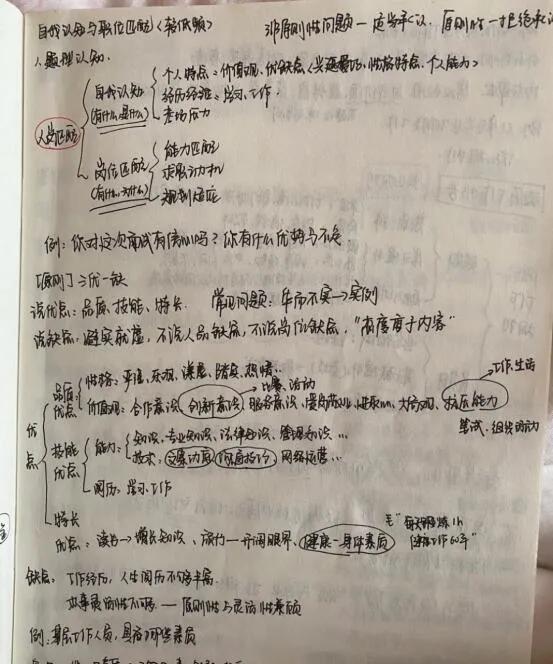 自我认知与职位匹配<较低频>
非原则性问题一应承认,原则性一拒绝承认
1、题型认知
人岗匹配
自我认知
(有什么,是什么)
个人特点:价值观、优缺点、兴趣爱好、性格特点、个人能力>
经历经验:学习、工作
考场应力
岗位匹配
(有什么,为什么)
能力匹配
求职动机
规划适应
例:你对这次面试有信心吗?你有什么优势与不足.
[原则] 三优一缺
说优点:品质、技能、特长. 常见问题:华而不实→实例
说缺点:避实就虚,不说人品缺点,不说岗位缺点,"态度重于内容"
优点
品质优点
性格:乐观、热情..
比赛、活动
工作、生活
价值观:合作意识、创新意识、服务意识、大局观、抗压能力
笔试、组织活动
技能优点
能力:知识、专业知识、法律知识、管理知识 ...
技术: 网络运营...
阅历:学习、工作
特长
优点:读书→增长知识、旅行一开阔眼界、健康一身体素质
毛"每天锻炼1h
工作60年"
缺点: 工作经历,人生阅历不够丰富.
办事灵活性不够 — 原则性与灵活性兼顾
例:基层工作人员,具备哪些素质